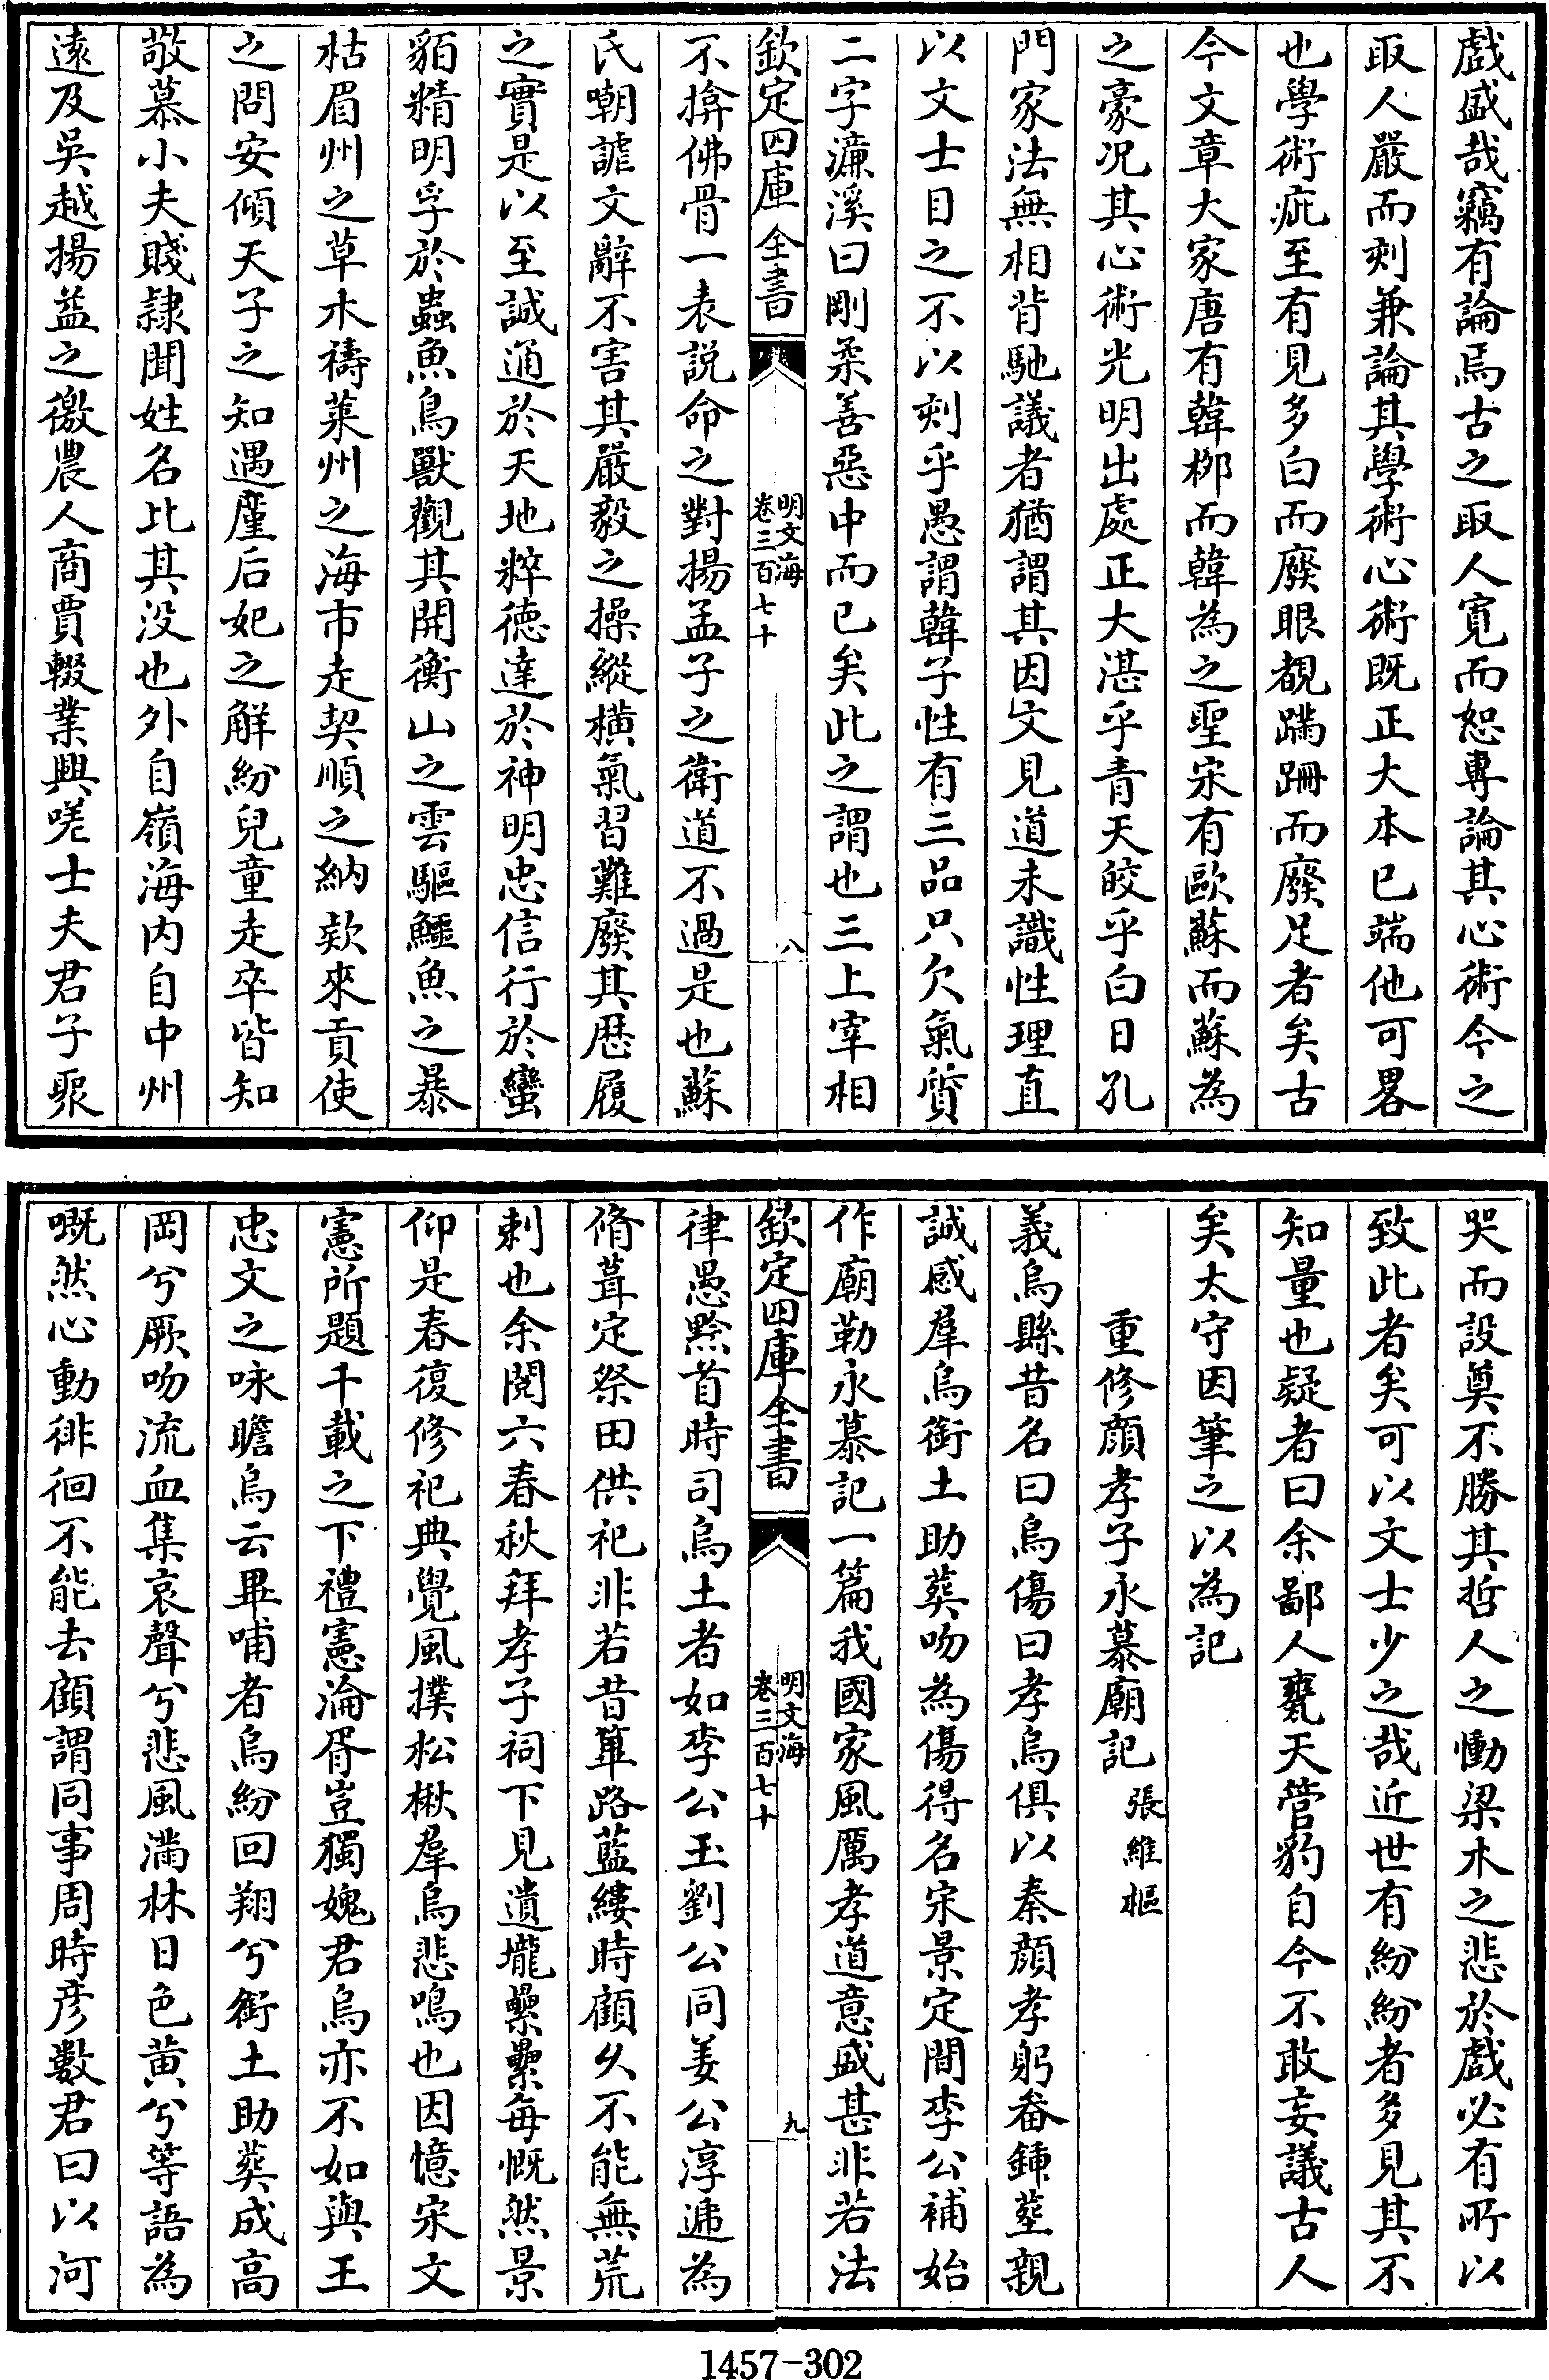 戲盛哉竊有論焉古之取人寛而恕專論其心術今之
取人嚴而刻兼論其學術心術既正大本已端他可畧
也學術疵至有見多白而廢眼覩蹣跚而廢足者矣古
今文章大家唐有韓柳而韓為之聖宋有歐蘇而蘇為
之豪况其心術光明出處正大湛乎青天皎乎白日孔
門家法無相背馳議者猶謂其因文見道未識性理直
以文士目之不以刻乎愚謂韓子性有三品只欠氣質
二字濂溪曰剛柔善惡中而已矣此之謂也三上宰相
欽定四庫全書
明文海
卷三百七十
八
不揜佛骨一表説命之對揚孟子之衛道不過是也蘇
氏嘲謔文辭不害其嚴毅之操縱橫氣習難廢其歴履
之實是以至誠通於天地粹德達於神明忠信行於蠻
貊精明孚於蟲魚鳥獸觀其開衡山之雲驅鱷魚之暴
枯眉州之草木禱萊州之海市走契順之納欵來貢使
之問安傾天子之知遇廑后妃之解紛兒童走卒皆知
敬慕小夫賤隷聞姓名比其没也外自嶺海内自中州
遠及吳越揚益之徼農人商賈輟業興嗟士夫君子聚
哭而設奠不勝其哲人之慟梁木之悲於戲必有所以
致此者矣可以文士少之哉近世有紛紛者多見其不
知量也疑者曰余鄙人甕天管豹自今不敢妄議古人
矣太守因筆之以為記
重修顔孝子永慕廟記張維樞
義烏縣昔名曰烏傷曰孝烏俱以秦顔孝躬畚鍤塟親
誠感羣烏銜土助葬吻為傷得名宋景定間李公補始
作廟勒永慕記一篇我國家風厲孝道意盛甚非若法
欽定四庫全書
明文海
卷三百七十
九
律愚黔首時司烏土者如李公玉劉公同姜公淳遞為
脩葺定祭田供祀非若昔篳路藍縷時顧乆不能無荒
剌也余閱六春秋拜孝子祠下見遺壠纍纍每慨然景
仰是春復修祀典覺風撲松楸羣烏悲鳴也因憶宋文
憲所題千載之下禮憲淪胥豈獨媿君烏亦不如與王
忠文之咏瞻烏云畢哺者烏紛回翔兮銜土助葬成高
岡兮厥吻流血集哀聲兮悲風滿林日色黄兮等語為
嘅然心動徘徊不能去顧謂同事周時彦數君曰以河
1457-302